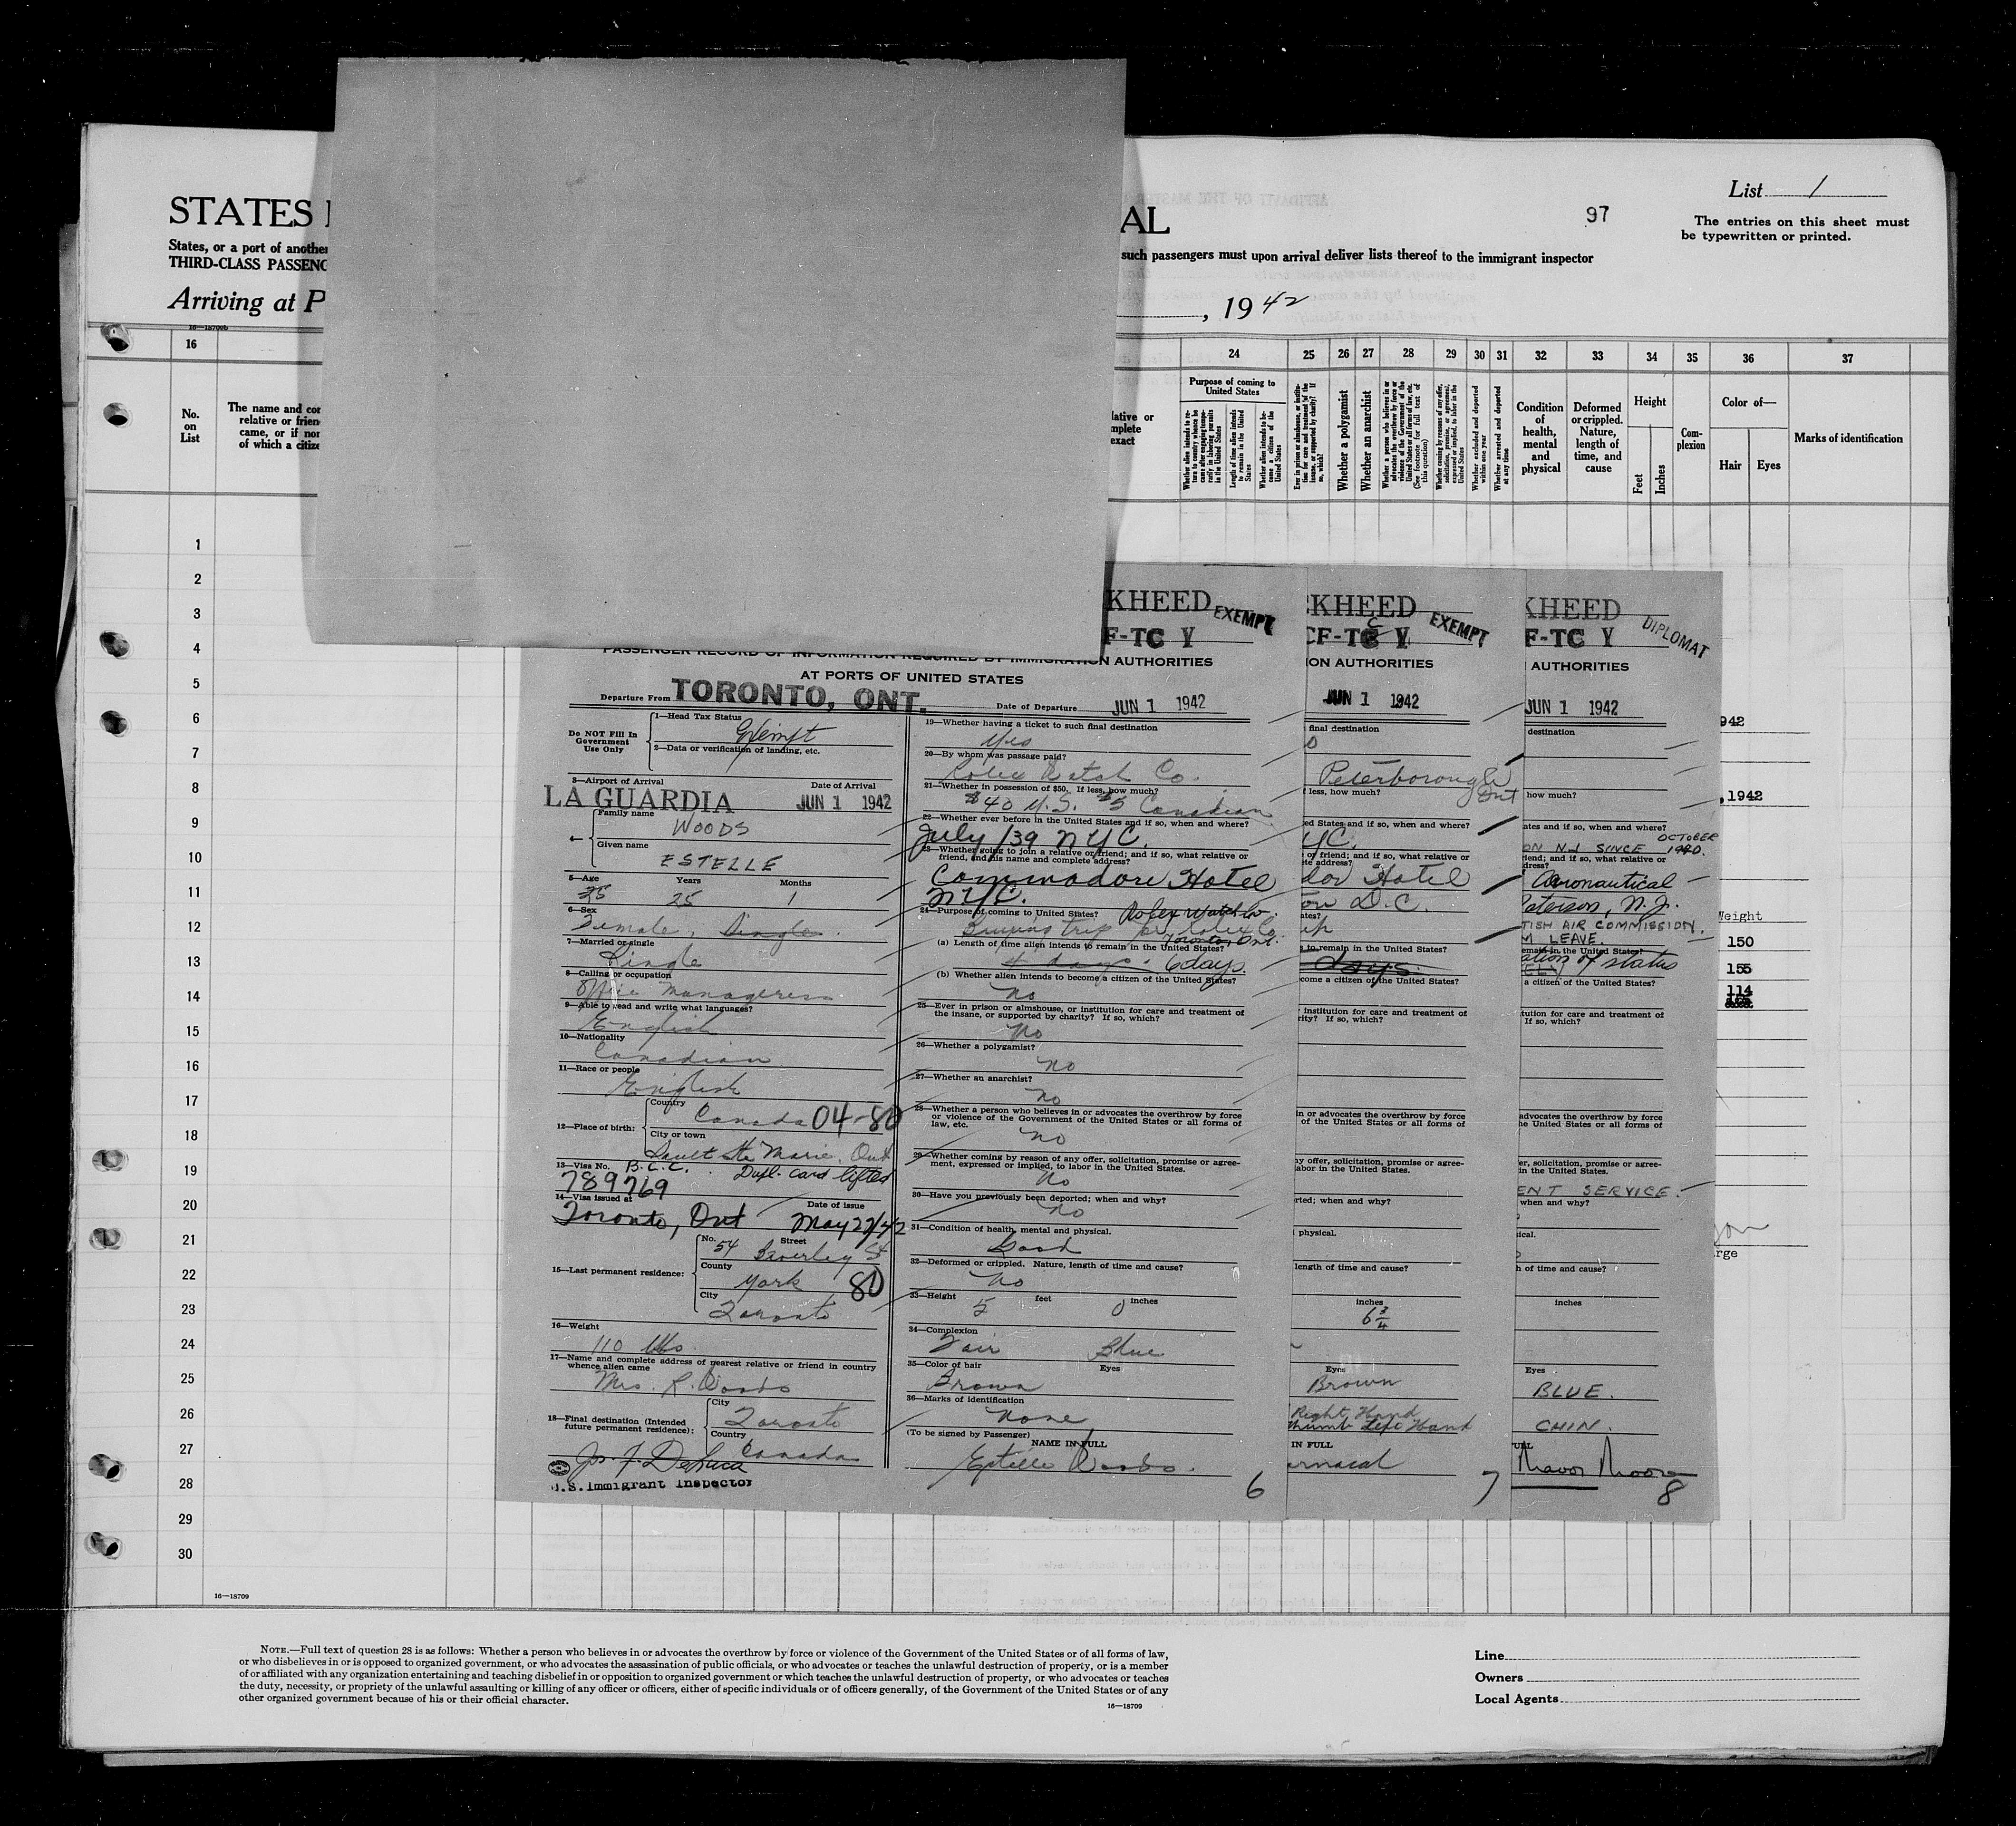 STATES
States, or a port of another
THIRD-CLASS PASSENG
Arriving at P
AL
97
List 1
The entries on this sheet must
be typewritten or printed.
such passengers must upon arrival deliver lists thereof to the immigrant inspector
, 19 42
16
24 25 26 27 28 29 30 31 32 33 34 35 36 37
No.
on
List
The name and
relative or frien
came, or if
of which a citize
lative or
mplete
exact
Purpose of coming to
United States
Whether a polygamist
Whether an anarchist
Condition
of
health,
mental
and
physical
Deformed
or crippled.
Nature,
length of
time, and
cause
Height
Feet
Inches
Com-
plexion
Color of—
Hair
Eyes
Marks of identification
1
2
3
4
5
6
7
8
9
10
11
12
13
14
15
16
17
18
19
20
21
22
23
24
25
26
27
28
29
30
16—18709
KHEED EXEMPT
F-TC V
PASSENGER RECORD OF INFORMATION REQUIRED BY IMMIGRATION AUTHORITIES
AT PORTS OF UNITED STATES
Departure From TORONTO, ONT. Date of Departure JUN 1 1942
Do NOT Fill In
Government
Use Only
1—Head Tax Status
Exempt
2—Data or verification of landing, etc.
3—Airport of Arrival Date of Arrival
LA GUARDIA JUN 1 1942
Family name
WOODS
Given name
ESTELLE
5—Age Years Months
25 25 1
6—Sex
Female, Single
7—Married or single
Single
8—Calling or occupation
Office Manageress
9—Able to read and write what languages?
English
10—Nationality
Canadian
11—Race or people
English
12—Place of birth:
Country
Canada 04-80
City or town
Sault Ste Marie, Ont
13—Visa No. B.C.C. Dupl. card lifted
789769
14—Visa issued at Date of issue
Toronto, Ont May 27/42
15—Last permanent residence:
No. Street
54 Beverley St
County
York 80
City
Toronto
16—Weight
110 lbs.
17—Name and complete address of nearest relative or friend in country
whence alien came
Mrs. R. Woods
18—Final destination (Intended
future permanent residence):
City
Toronto
Country
Canada
Jos. F. DeLuca
U.S. Immigrant Inspector
19—Whether having a ticket to such final destination
Yes
20—By whom was passage paid?
Rolex Watch Co.
21—Whether in possession of $50. If less, how much?
$40 U.S. $5 Canadian
22—Whether ever before in the United States and if so, when and where?
July /39 NYC.
23—Whether going to join a relative or friend; and if so, what relative or
friend, and his name and complete address?
Commodore Hotel
NYC.
24—Purpose of coming to United States? Rolex Watch Co.
Buying trip for Rolex Co.
Toronto, Ont.
(a) Length of time alien intends to remain in the United States?
4 days. 6 days.
(b) Whether alien intends to become a citizen of the United States?
No
25—Ever in prison or almshouse, or institution for care and treatment of
the insane, or supported by charity? If so, which?
No
26—Whether a polygamist?
No
27—Whether an anarchist?
No
28—Whether a person who believes in or advocates the overthrow by force
or violence of the Government of the United States or all forms of
law, etc.
No
29—Whether coming by reason of any offer, solicitation, promise or agree-
ment, expressed or implied, to labor in the United States.
No
30—Have you previously been deported; when and why?
No
31—Condition of health, mental and physical.
Good
32—Deformed or crippled. Nature, length of time and cause?
No
33—Height 5 feet 0 inches
34—Complexion
Fair Blue
35—Color of hair Eyes
Brown
36—Marks of identification
None
(To be signed by Passenger)
NAME IN FULL
Estelle Woods.
6
CKHEED EXEMPT
CF-TC V
ION AUTHORITIES
JUN 1 1942
final destination
Peterborough
Ont
f less, how much?
ed States and if so, when and where?
YC.
or friend; and if so, what relative or
te address?
dor Hotel
on D.C.
ates?
to remain in the United States?
days.
come a citizen of the United States?
institution for care and treatment of
rity? If so, which?
in or advocates the overthrow by force
of the United States or all forms of
ny offer, solicitation, promise or agree-
labor in the United States.
rted; when and why?
physical.
length of time and cause?
inches
6 3/4
Eyes
Brown
Right Hand
Thumb Left Hand
IN FULL
7
KHEED DIPLOMAT
F-TC V
AUTHORITIES
JUN 1 1942
destination
how much?
ates and if so, when and where?
OCTOBER
ON NJ SINCE 1940.
iend; and if so, what relative or
dress?
Aeronautical
Paterson, N.J.
TISH AIR COMMISSION.
M LEAVE.
emain in the United States?
ation of status
a citizen of the United States?
tution for care and treatment of
If so, which?
advocates the overthrow by force
he United States or all forms of
er, solicitation, promise or agree-
in the United States.
ENT SERVICE.
when and why?
ical.
h of time and cause?
inches
Eyes
BLUE.
CHIN.
FULL
Mavor Moore
8
942
, 1942
Weight
150
155
114
rge
NOTE.—Full text of question 28 is as follows: Whether a person who believes in or advocates the overthrow by force or violence of the Government of the United States or of all forms of law,
or who disbelieves in or is opposed to organized government, or who advocates the assassination of public officials, or who advocates or teaches the unlawful destruction of property, or is a member
of or affiliated with any organization entertaining and teaching disbelief in or opposition to organized government or which teaches the unlawful destruction of property, or who advocates or teaches
the duty, necessity, or propriety of the unlawful assaulting or killing of any officer or officers, either of specific individuals or of officers generally, of the Government of the United States or of any
other organized government because of his or their official character.
16—18709
Line
Owners
Local Agents